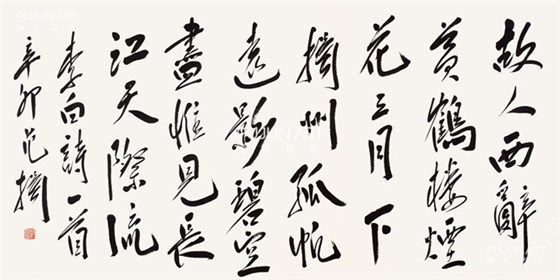 故人西辭
黄鶴樓煙
花三月下
揚州孤帆
遠影碧空
盡惟見長
江天際流
李白詩一首
辛卯范揚